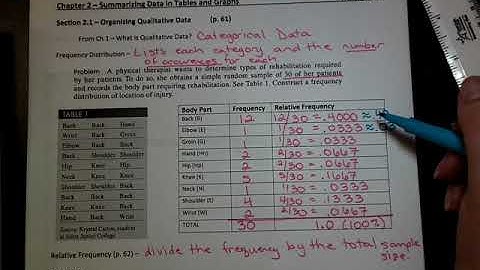 Chapter 2 – Summarizing Data in Tables and Graphs
Section 2.1 – Organizing Qualitative Data (p. 61)
From Ch 1 – What is Qualitative Data? Categorical Data
Frequency Distribution – Lists each category and the number
of occurences for each
Problem: A physical therapist wants to determine types of rehabilitation required
by her patients. To do so, she obtains a simple random sample of 30 of her patients
and records the body part requiring rehabilitation. See Table 1. Construct a frequency
distribution of location of injury.
TABLE 1
Back Back Hand
Wrist Back Groin
Elbow Back Back
Back Shoulder Shoulder
Hip Knee Hip
Neck Knee Knee
Shoulder Shoulder Back
Back Back Back
Knee Knee Back
Hand Back Wrist
Source: Krystal Catton, student
at Joliet Junior College
Body Part Frequency Relative Frequency
Back (B) 12 12/30 = .4000 ≈
Elbow (E) 1 1/30 = .0333 ≈
Groin (G) 1 1/30 = .0333
Hand (Hn) 2 2/30 = .0667
Hip (Hp) 2 2/30 = .0667
Knee (K) 5 5/30 = .1667
Neck (N) 1 1/30 = .0333
Shoulder (S) 4 4/30 = .1333
Wrist (W) 2 2/30 = .0667
TOTAL 30 1.0 (100%)
Relative Frequency (p. 62) – divide the frequency by the total sample
size.